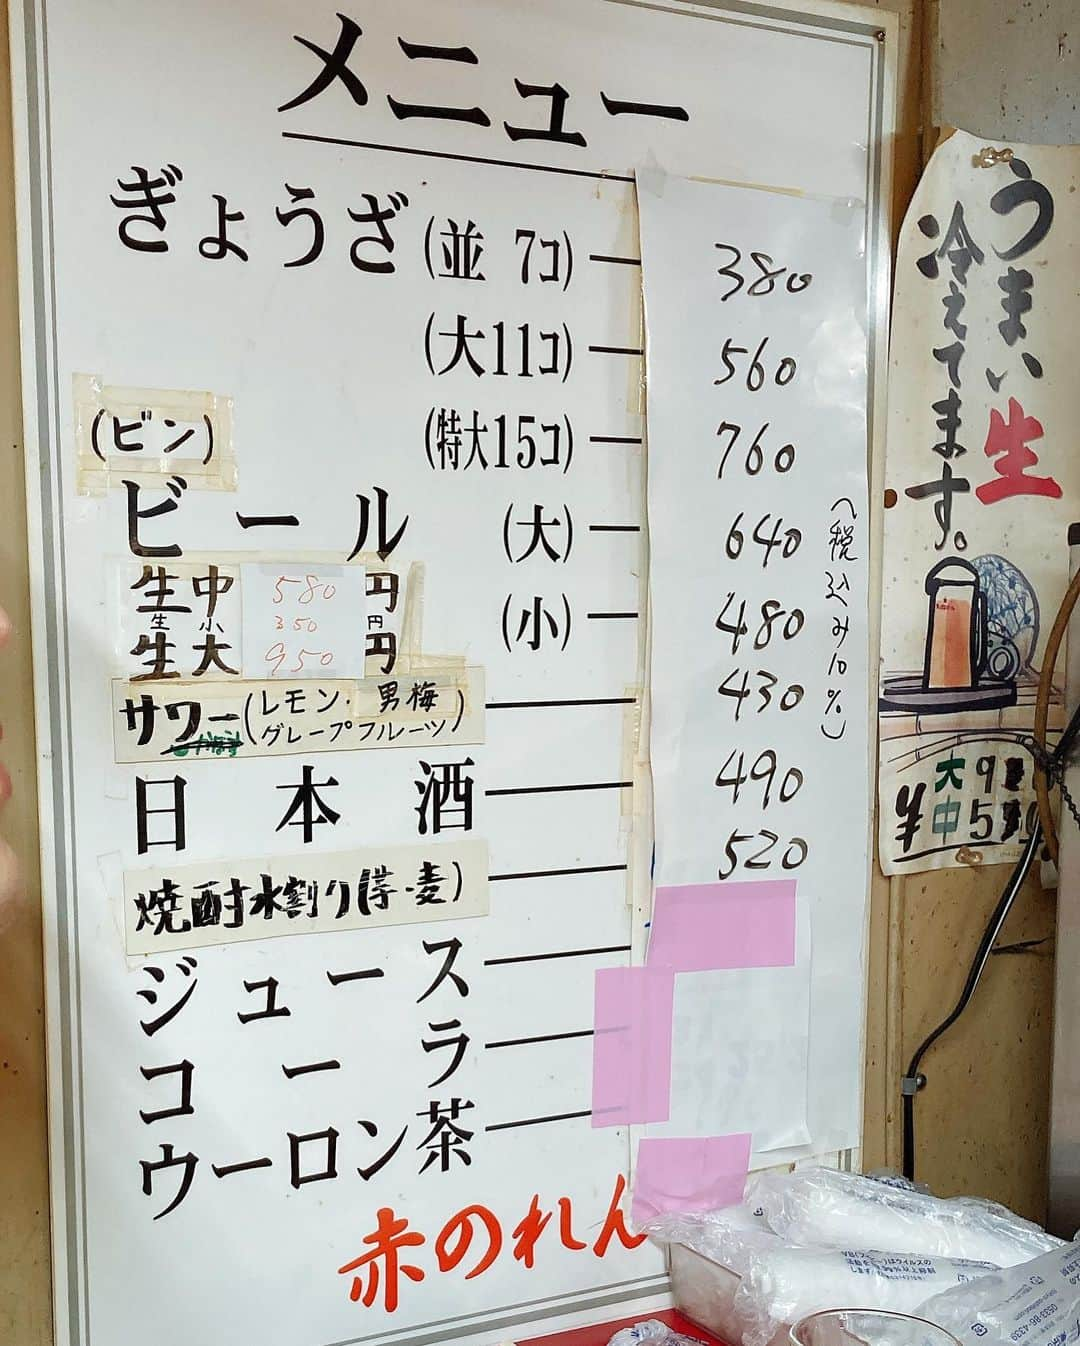 メニュー
ぎょうざ (並 7コ) 380
(大11コ) 560
(特大15コ) 760
(ビン)
ビール (大) 640
(小) 480
生中 580円
生小 350円
生大 950円
サワー (レモン・男梅 グレープフルーツ) 430
日本酒 490
焼酎水割り(芋・麦) 520
ジュース
コーラ
ウーロン茶
(税込み10%)
赤のれん
うまい生
冷えてます。
大9
中5
0533-86-4339